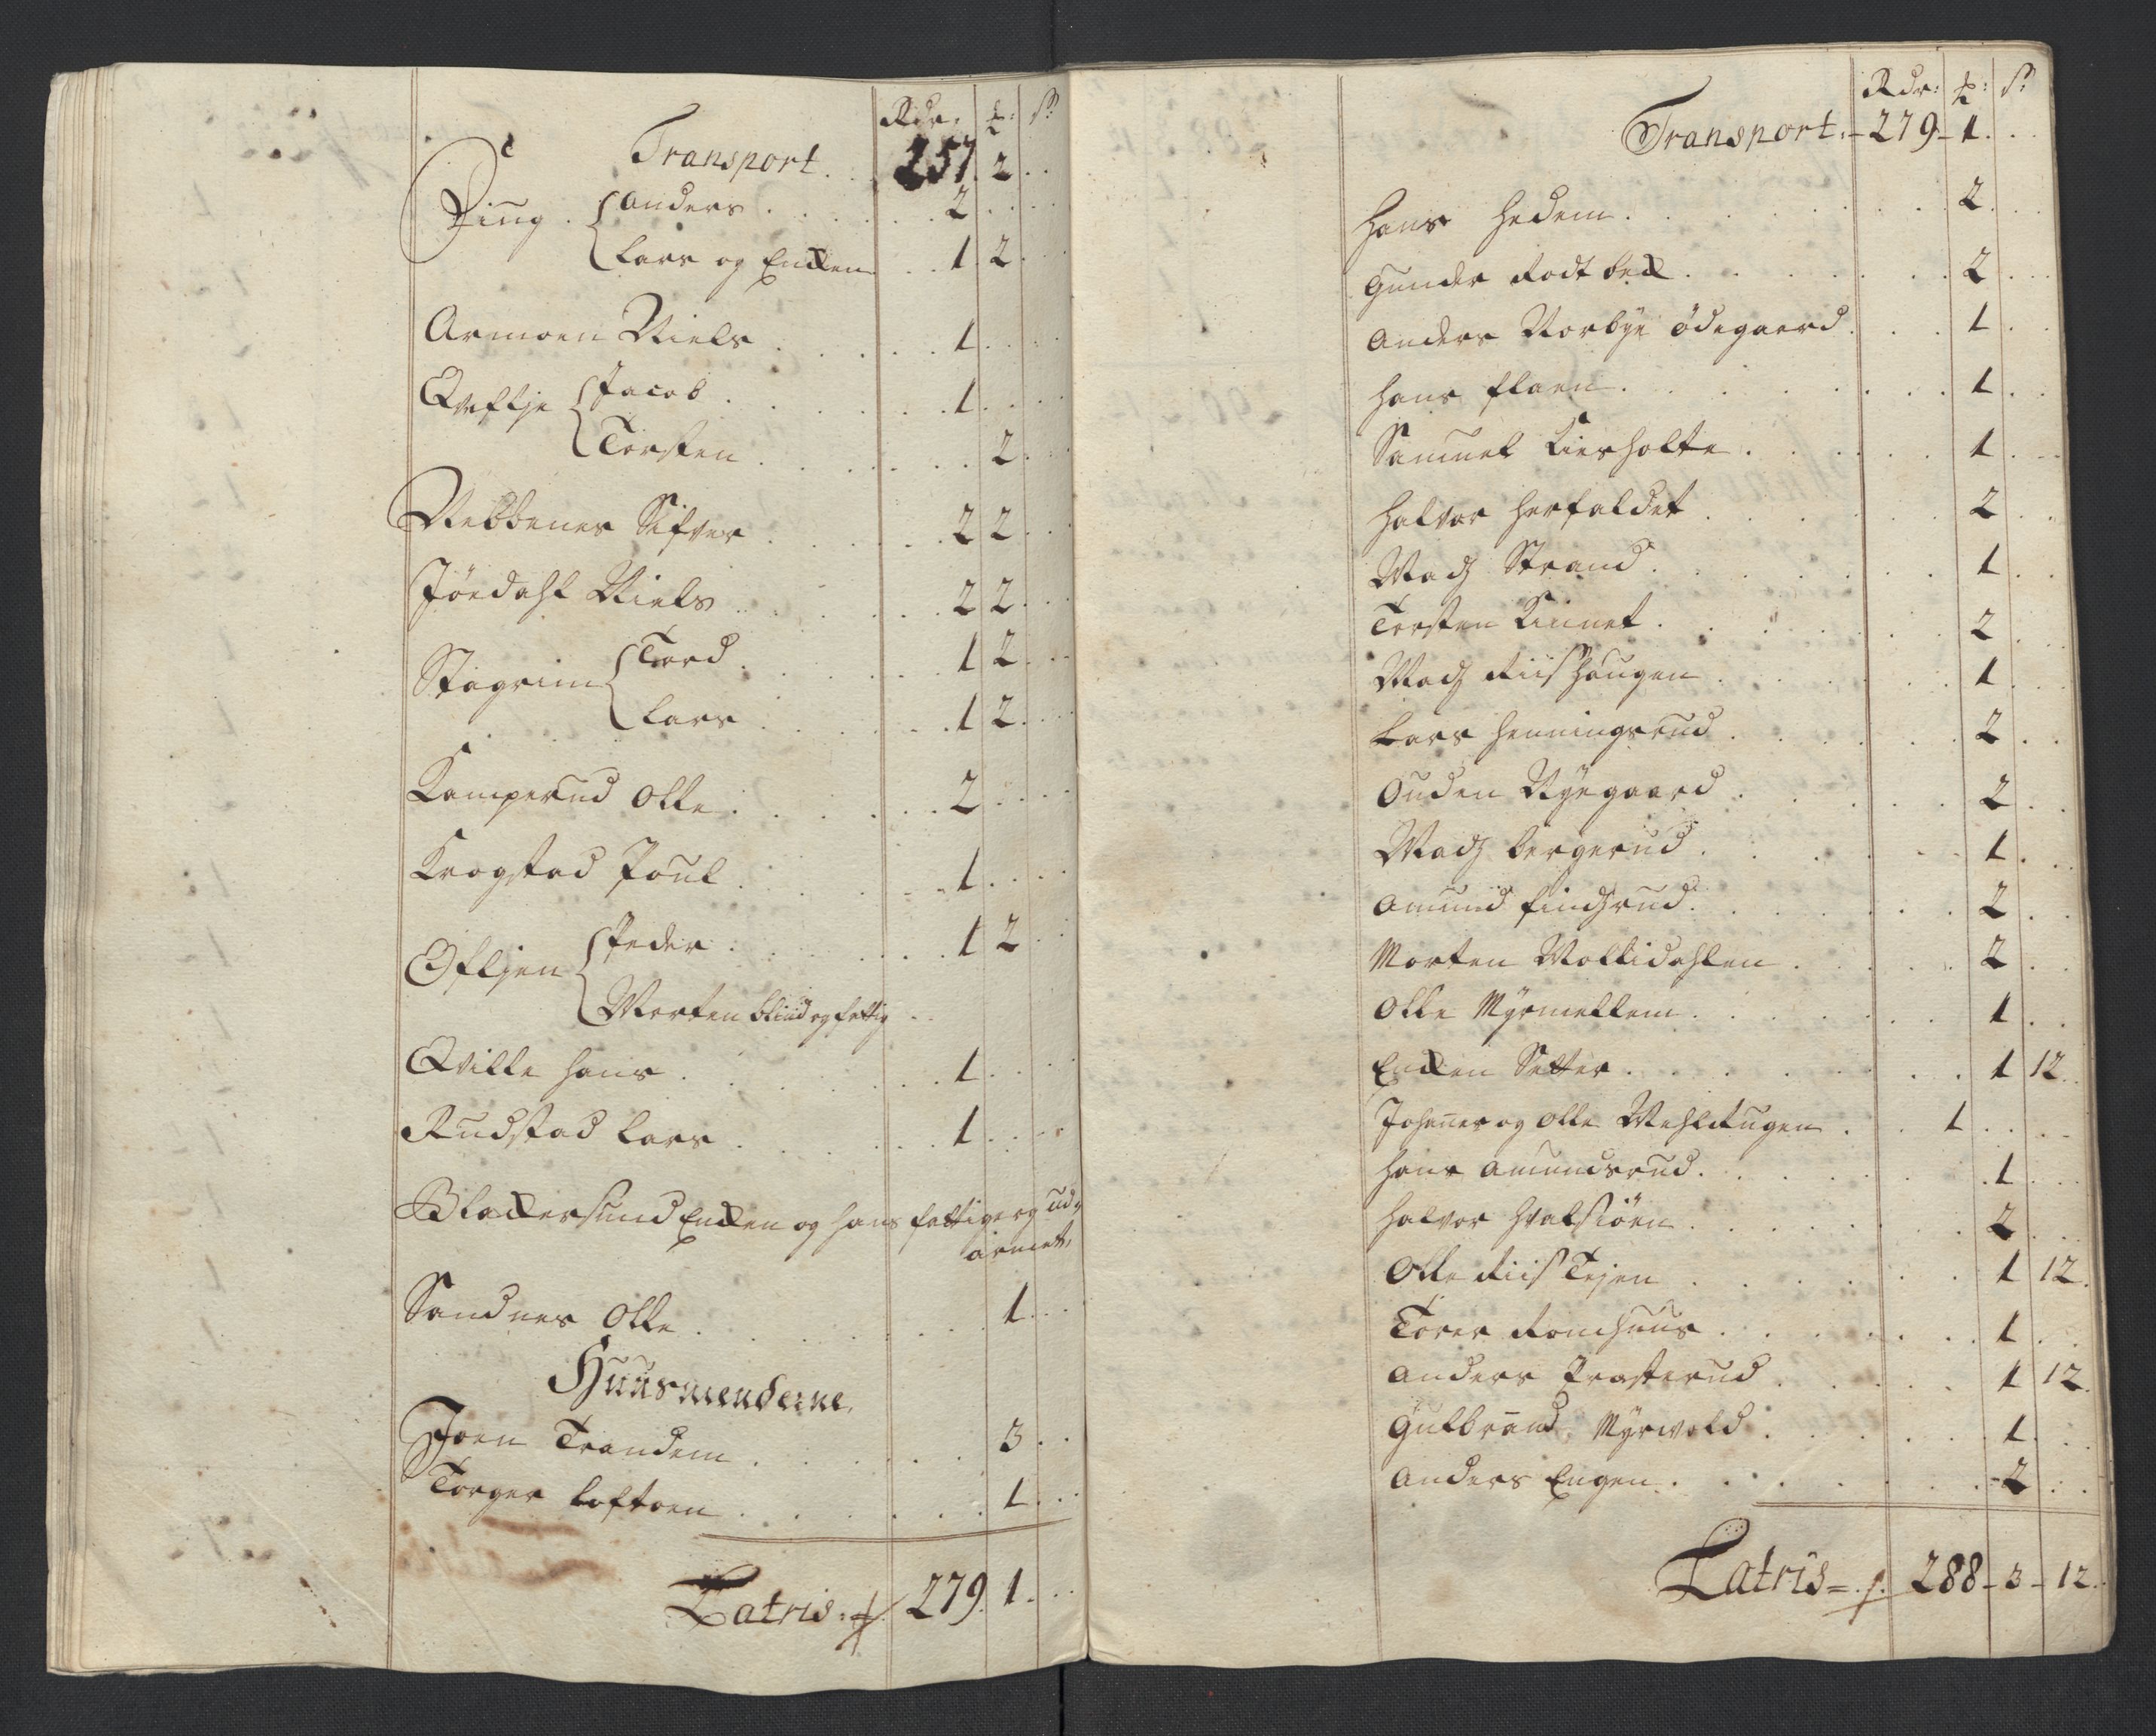 Rdr: ꝑ: ß
Transport . . 257. 2 . .
Ring . { Anders . . . 2 . . .
Lars og Enchen . . 1. 2 . .
Armoen Niels . . . 1 . . .
Qveflje { Jacob . . . 1 . . .
Torsten . . . 2 . .
Nebbenes Sifver . . . 2 2 . .
Jördahl Niels . . . 2 2 . .
Stagrim { Tord . . . 1 2 . .
Lars . . . 1 2 . .
Kamperud Olle . . . 2 . . .
Krogstad Poul . . . 1 . . .
Øfljen { Peder . . . 1 2 . .
Morten blind og fattig . .
Qville Hans . . . 1 . . .
Rudstad Lars . . . 1 . . .
Blackersund Enchen og Hans fattige og ud,
armet,
Sandnes Olle . . . 1 . .
Huusmenderne,
Joen Trandem . . . 3 . .
Torger Loftoen . . . 1 . .
Latris: 279. 1 . .
Rdr: ꝑ: ß
Transport: - 279 - 1 . .
Hans Hedem . . . 2 . .
Gunder Rodtbech . . . 2 . .
Anders Norbye Ödegaard . . . 1 . .
Hans Flaen . . . 1 . .
Samuel Kierholte . . . 1 . .
Halvor Herfaldet . . . 2 . .
Madz Strand . . . 1 . .
Torsten Kinnet . . . 2 . .
Madz Riishaugen . . . 1 . .
Lars Henningsrud . . . 2 . .
Ouden Nyegaard . . . 2 . .
Madz Bergerud . . . 1 . .
Amund Findzrud . . . 2 . .
Morten Mollidahlen . . . 2 . .
Olle Myrmellem . . . 1 . .
Enchen Setter . . . 1 12 . .
Johanes og Olle Mehlldugen . . 1 . . .
Hans Amundsrud . . . 1 . .
Halvor Hvalsiöen . . . 2 . .
Olle Riis Tejen . . . 1 12 .
Torer Romshuus . . . 1 . .
Anders Prasterud . . . 1 12 .
Gulbrand Myrwold . . . 1 . .
Anders Engen . . . 2 . .
Latris = 288 - 3 - 12 .